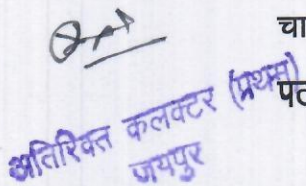 चा
पट
अतिरिक्त कलक्टर (प्रथम)
जयपुर